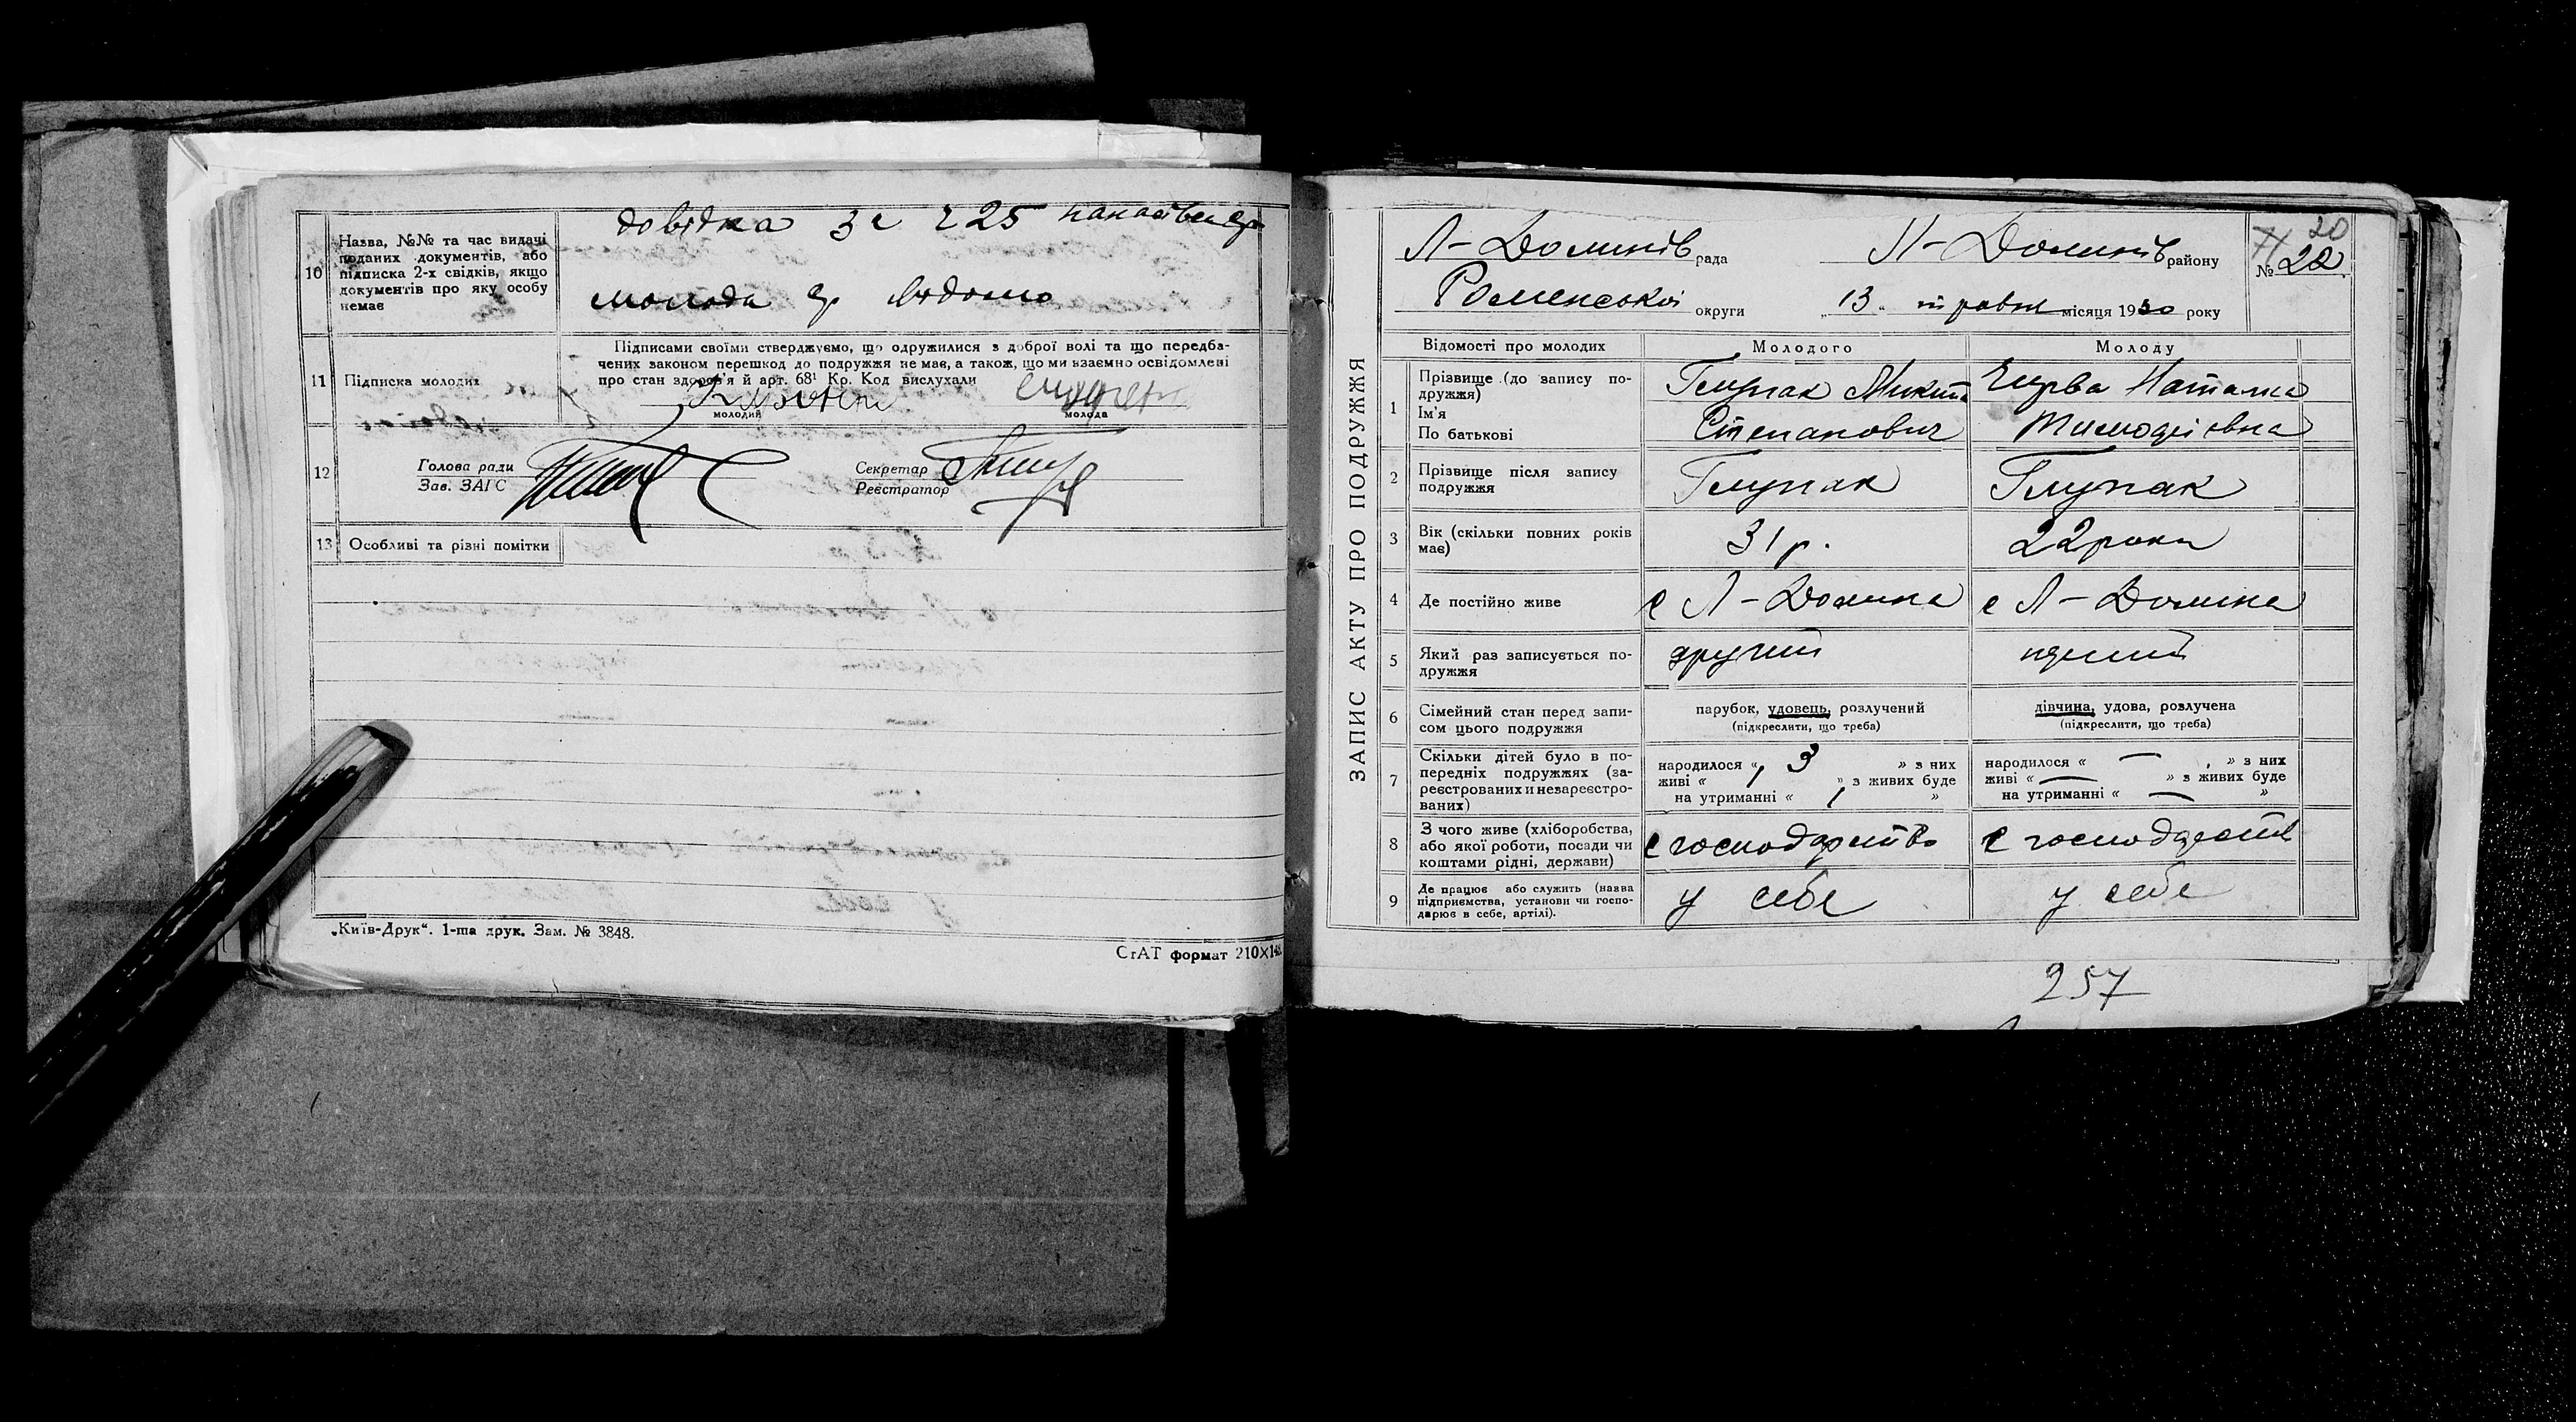 10
Назва, №№ та час видачі
поданих документів, або
підписка 2-х свідків, якщо
документів про яку особу
немає
довідка за 225
молода
11
Підписка молодих
Підписами своїми стверджуємо, що одружилися з доброї волі та що передба-
чених законом перешкод до подружжя немає, а також, що ми взаємно освідомлені
про стан здоров'я й арт. 68¹ Кр. Код вислухали
молодий
молода
12
Голова ради
Зав. ЗАГС
Секретар
Реєстратор
13 Особливі та різні помітки
„Київ-Друк“. 1-ша друк. Зам. № 3848.
СтАТ формат 210×148
ЗАПИС АКТУ ПРО ПОДРУЖЖЯ
Л-Долинів рада Л-Долинів району
20
71
№ 22
Роменської округи „13“ травня місяця 1930 року
Відомості про молодих Молодого Молоду
1
Прізвище (до запису по-
дружжя)
Ім'я
По батькові
Глупак Микита
Степанович
Наталка
Тимофіівна
2
Прізвище після запису
подружжя
Глупак
Глупак
3
Вік (скільки повних років
має)
31 р.
22 роки
4
Де постійно живе
с Л-Долина
с Л-Долина
5
Який раз записується по-
дружжя
другий
перший
6
Сімейний стан перед запи-
сом цього подружжя
парубок, удовець, розлучений
(підкреслити, що треба)
дівчина, удова, розлучена
(підкреслити, що треба)
7
Скільки дітей було в по-
передніх подружжях (за-
реєстрованих и незареєстро-
ваних)
народилося « 3 » з них
живі « 1 » з живих буде
на утриманні « 1 »
народилося « — » з них
живі « — » з живих буде
на утриманні « — »
8
З чого живе (хліборобства,
або якої роботи, посади чи
коштами рідні, держави)
с господарство
с господарств
9
Де працює або служить (назва
підприємства, установи чи госпо-
дарює в себе, артілі).
у себе
у себе
257